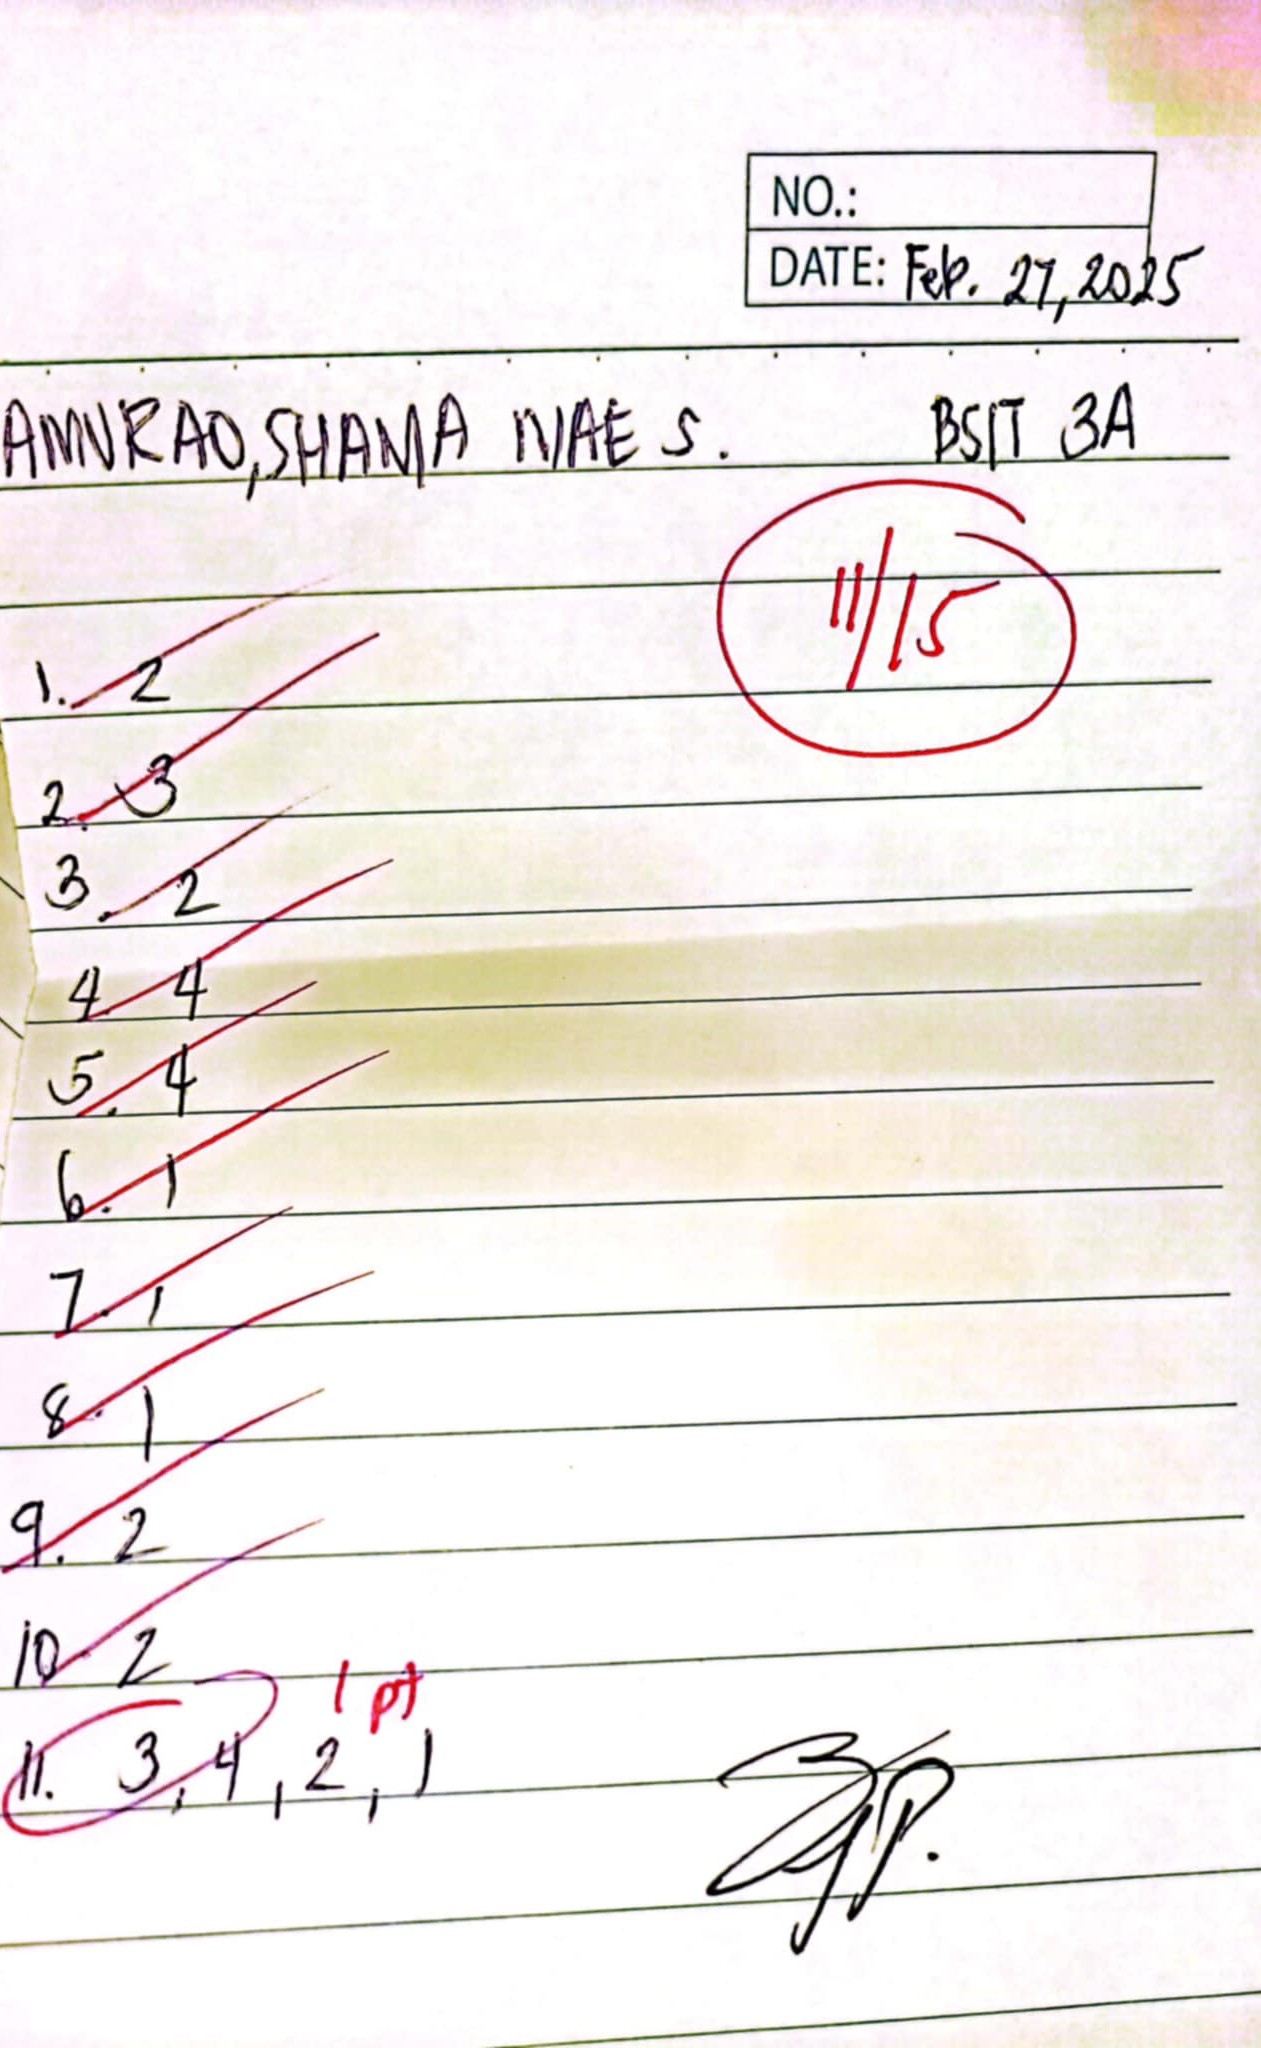 NO.:
DATE: Feb. 27, 2025
AMURAO, SHAMA MAE S. BSIT 3A
11/15
1. 2
2. 3
3. 2
4. 4
5. 4
6. 1
7. 1
8. 1
9. 2
10. 2
1 pt
11. 3, 4, 2, 1